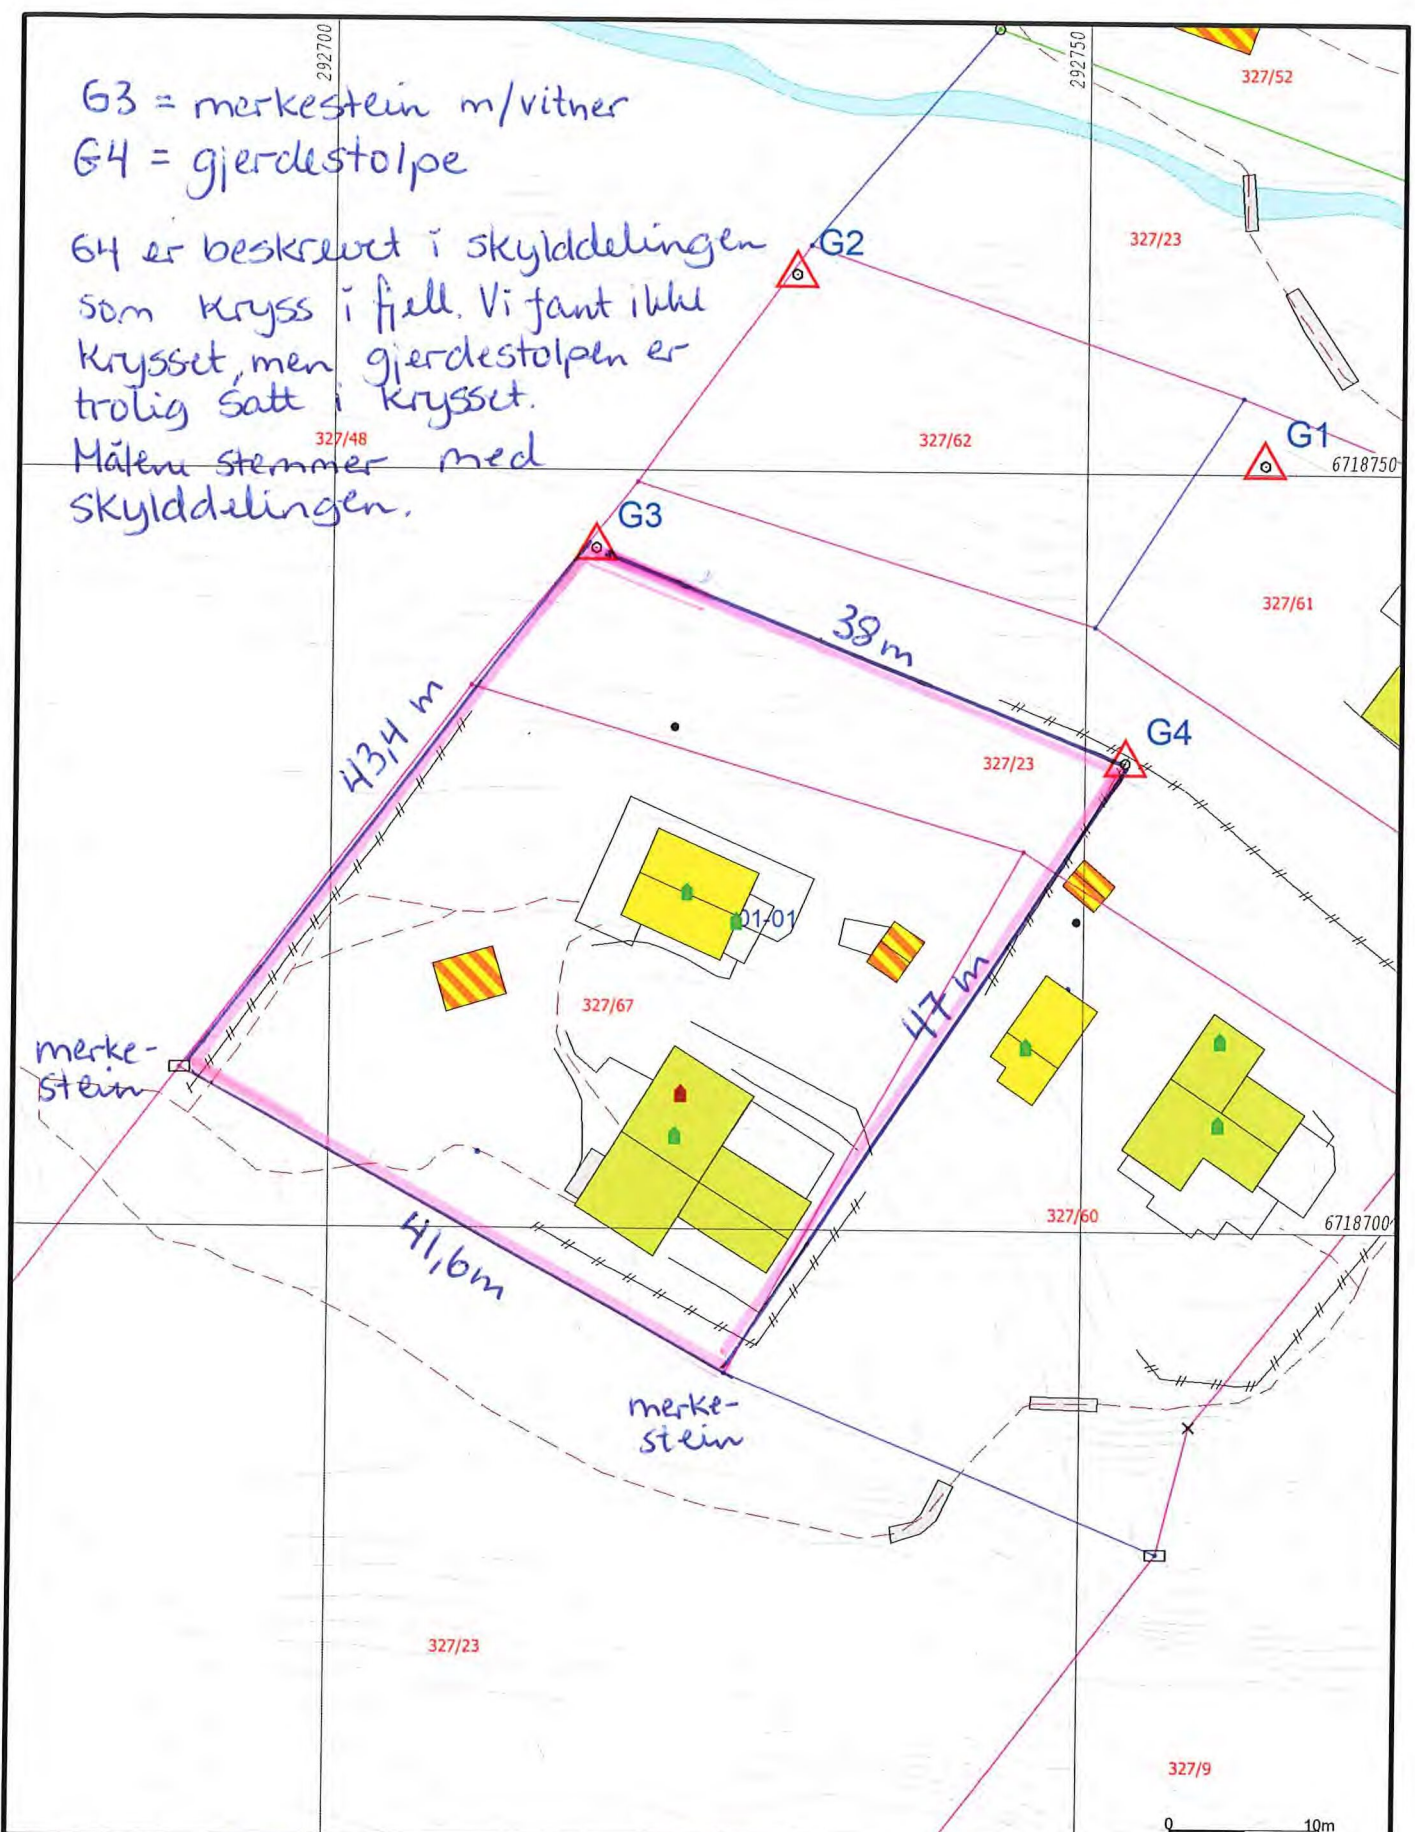 292700
292750
327/52
G3 = merkestein m/vitner
G4 = gjerdestolpe
G4 er beskrevet i skylddelingen
som kryss i fjell. Vi fant ikke
krysset, men gjerdestolpen er
trolig satt i krysset.
Målene stemmer med
skylddelingen.
327/23
G2
327/48
327/62
G1
6718750
G3
327/61
38m
43,4 m
G4
327/23
01-01
47 m
327/67
merke-
stein
327/60
6718700
41,6m
merke-
stein
327/23
327/9
0 10m